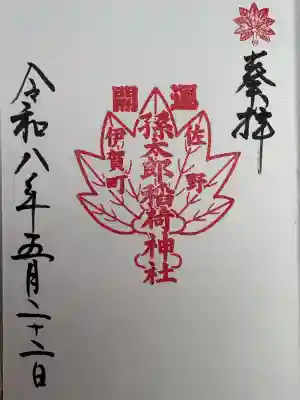 奉拝
開運
佐野
孫太郎稲荷神社
伊賀町
令和八年五月二十二日